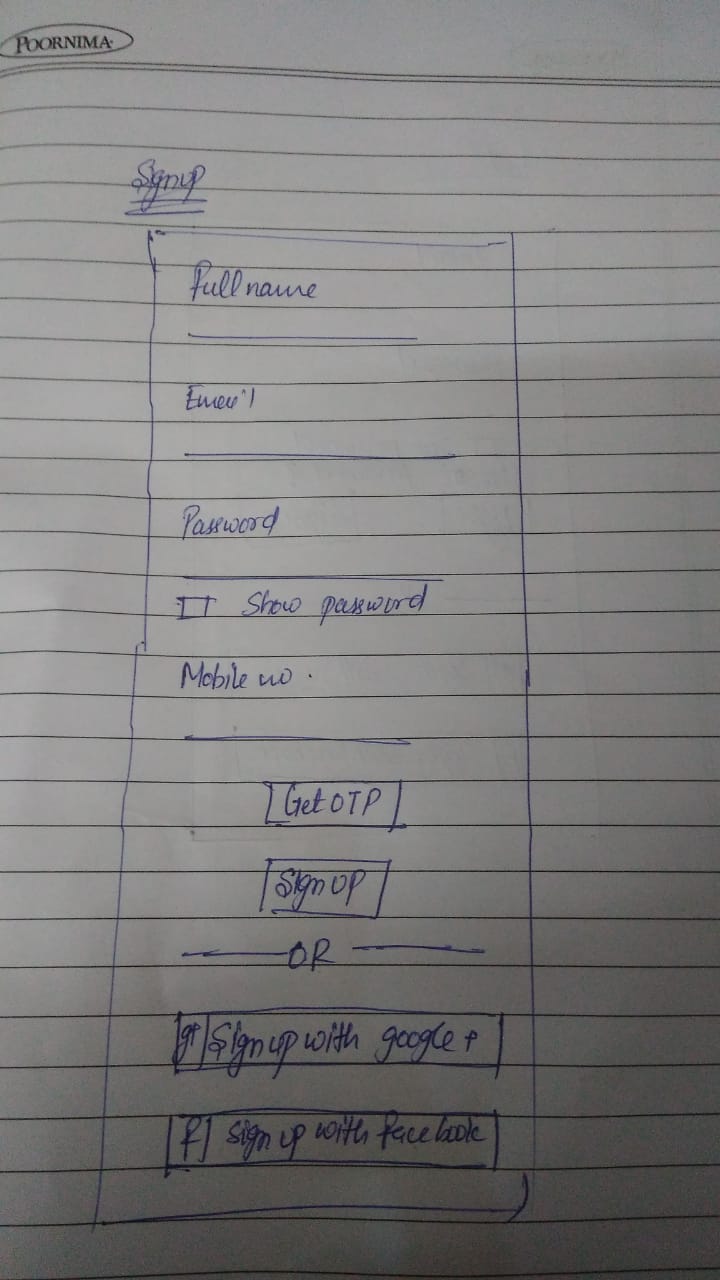 POORNIMA
Signup
Full name
Email
Password
Show password
Mobile no.
Get OTP
Sign UP
OR
g+ Sign up with google +
f Sign up with facebook